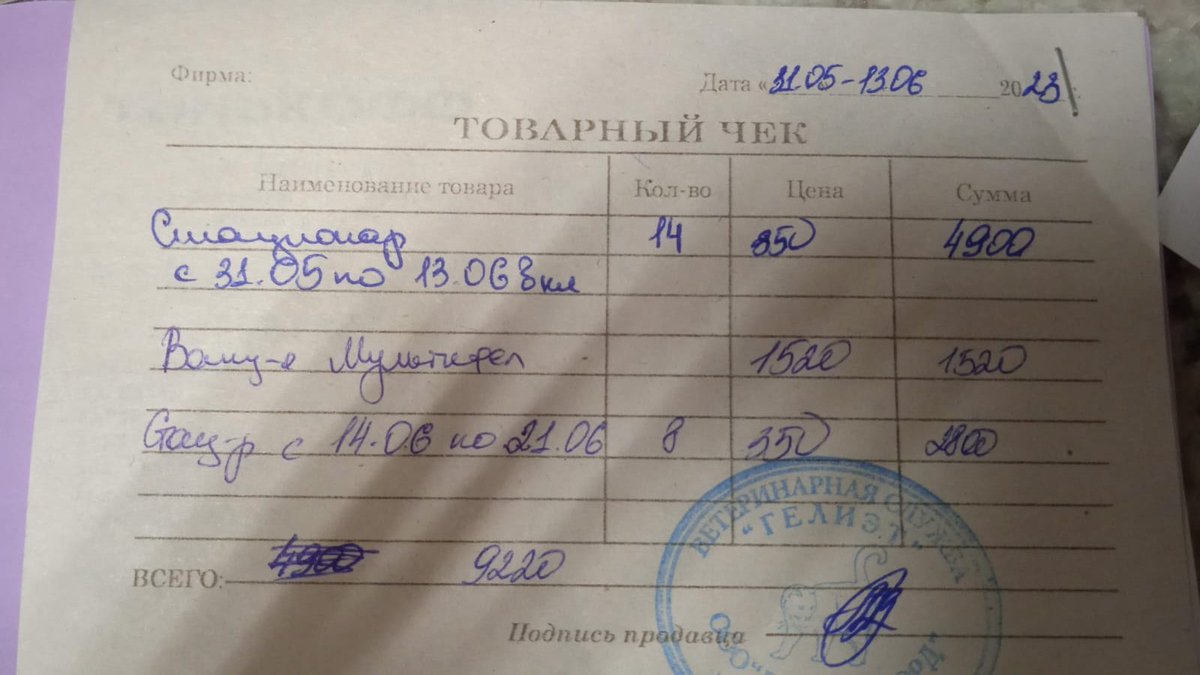 Фирма:
Дата «31.05-13.06 2023
ТОВАРНЫЙ ЧЕК
Наименование товара Кол-во Цена Сумма
Стационар 14 350 4900
с 31.05 по 13.06 вкл
1520 1520
Стац-р с 14.06 по 21.06 8 350 2800
ВЕТЕРИНАРНАЯ СЛУЖБА
"ГЕЛИЭТ"
ВСЕГО: 4900 9220
Подпись продавца
ООО